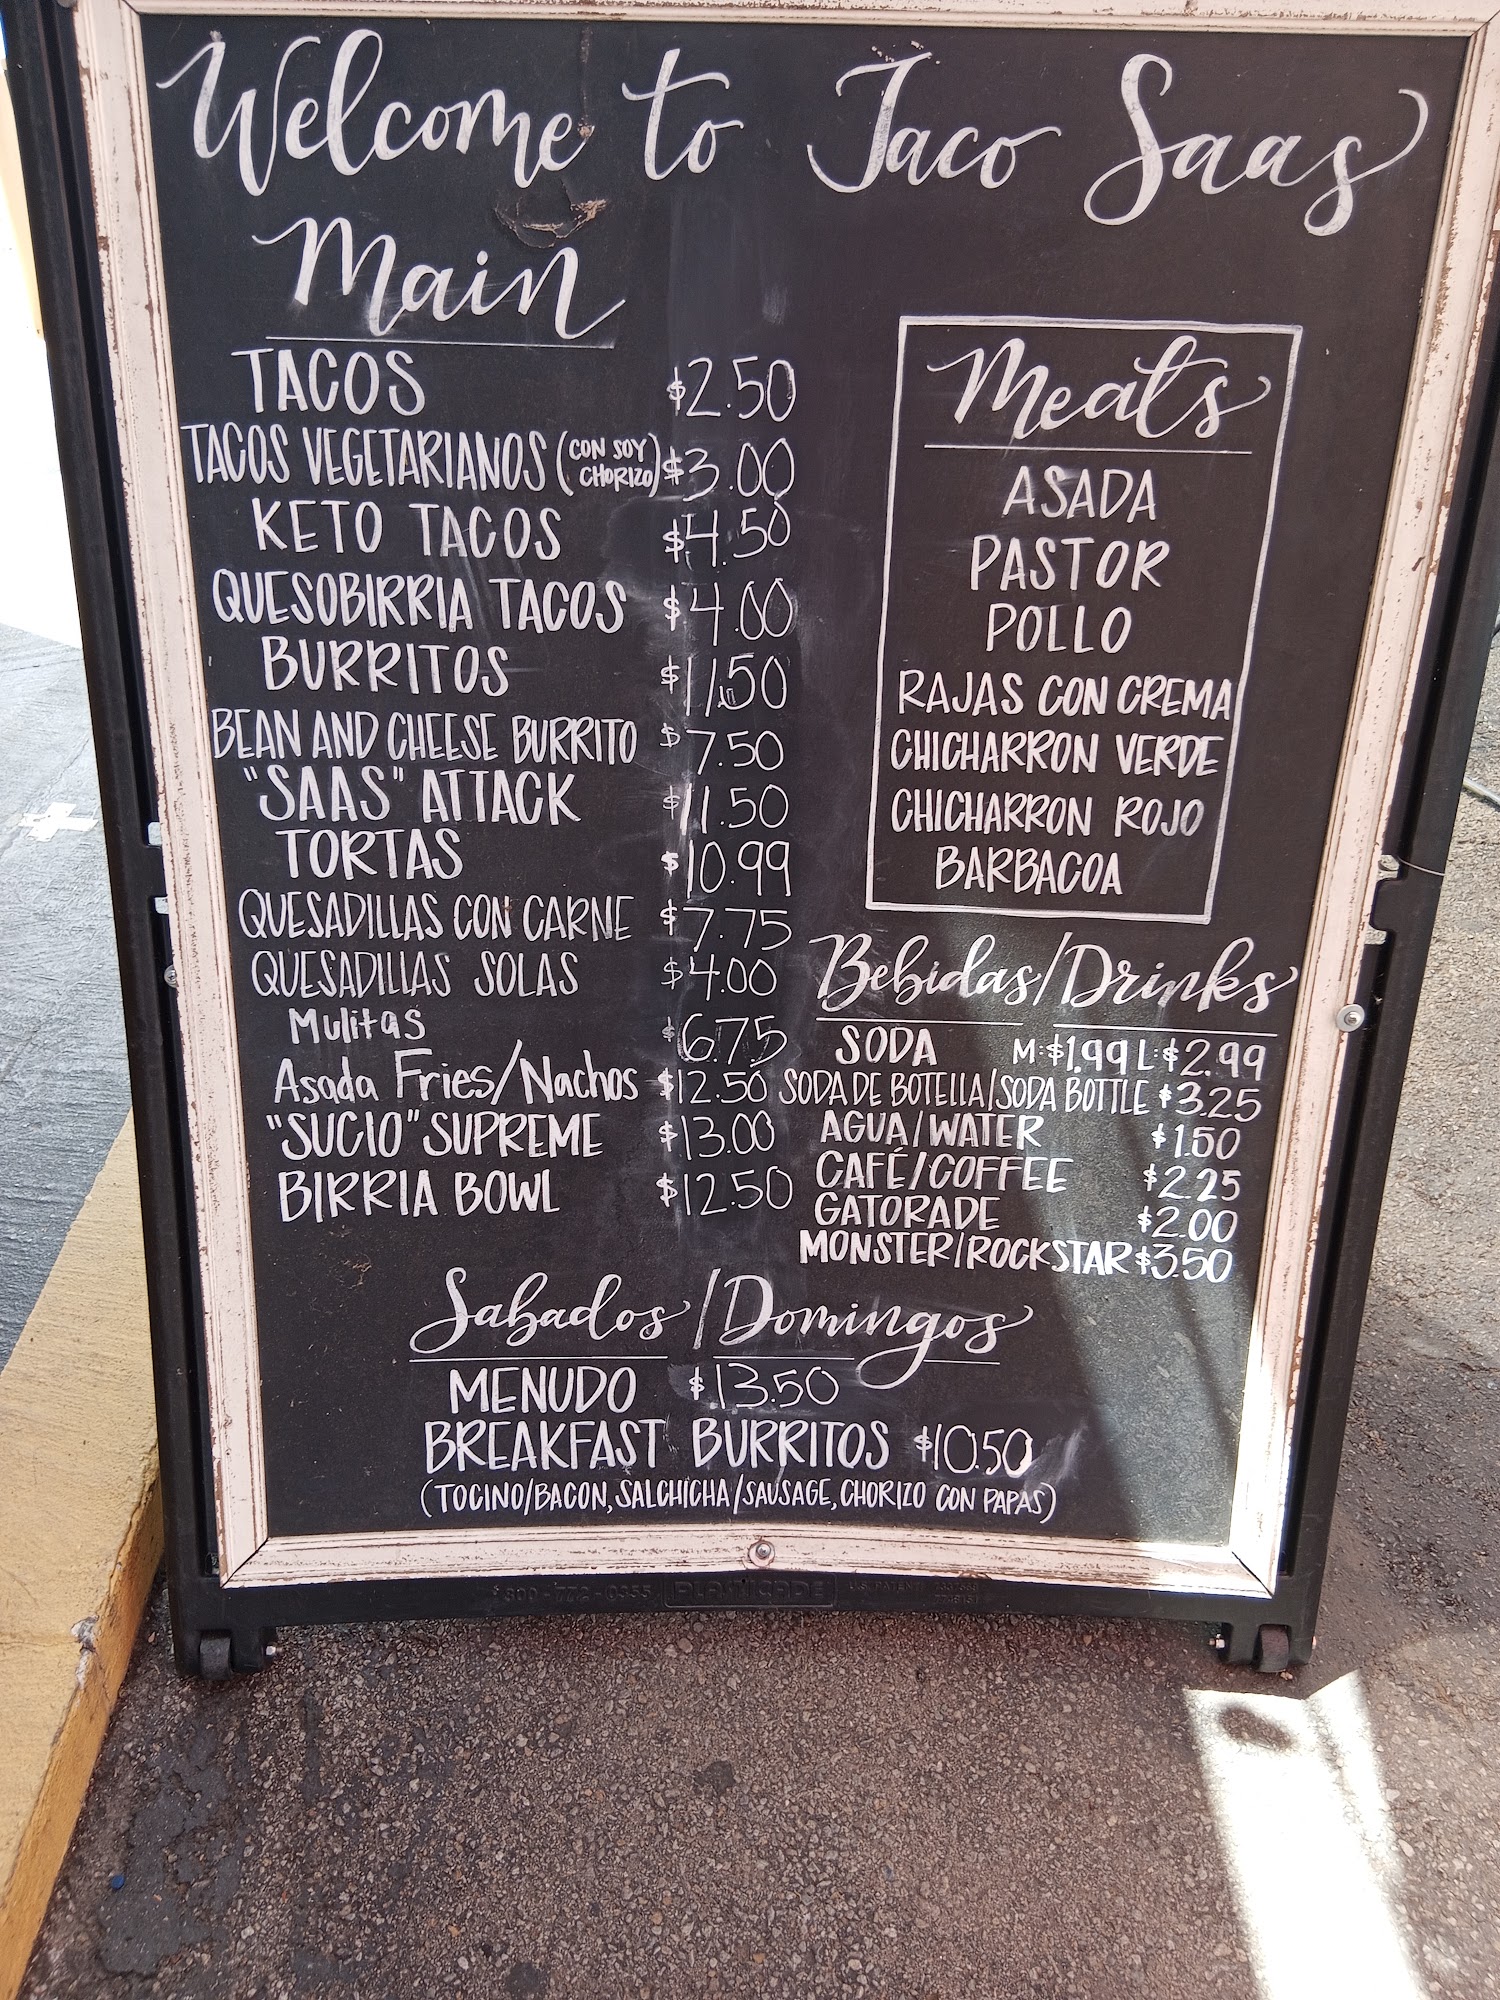 Welcome to Taco Saas
Main
TACOS $2.50
TACOS VEGETARIANOS (CON SOY CHORIZO) $3.00
KETO TACOS $4.50
QUESOBIRRIA TACOS $4.00
BURRITOS $11.50
BEAN AND CHEESE BURRITO $7.50
"SAAS" ATTACK $11.50
TORTAS $10.99
QUESADILLAS CON CARNE $7.75
QUESADILLAS SOLAS $4.00
Mulitas $6.75
Asada Fries/Nachos $12.50
"SUCIO" SUPREME $13.00
BIRRIA BOWL $12.50
Meats
ASADA
PASTOR
POLLO
RAJAS CON CREMA
CHICHARRON VERDE
CHICHARRON ROJO
BARBACOA
Bebidas/Drinks
SODA M:$1.99 L:$2.99
SODA DE BOTELLA/SODA BOTTLE $3.25
AGUA/WATER $1.50
CAFÉ/COFFEE $2.25
GATORADE $2.00
MONSTER/ROCKSTAR $3.50
Sabados/Domingos
MENUDO $13.50
BREAKFAST BURRITOS $10.50
(TOCINO/BACON, SALCHICHA/SAUSAGE, CHORIZO CON PAPAS)
800-772-0355 PLASTICADE U.S. PATENT